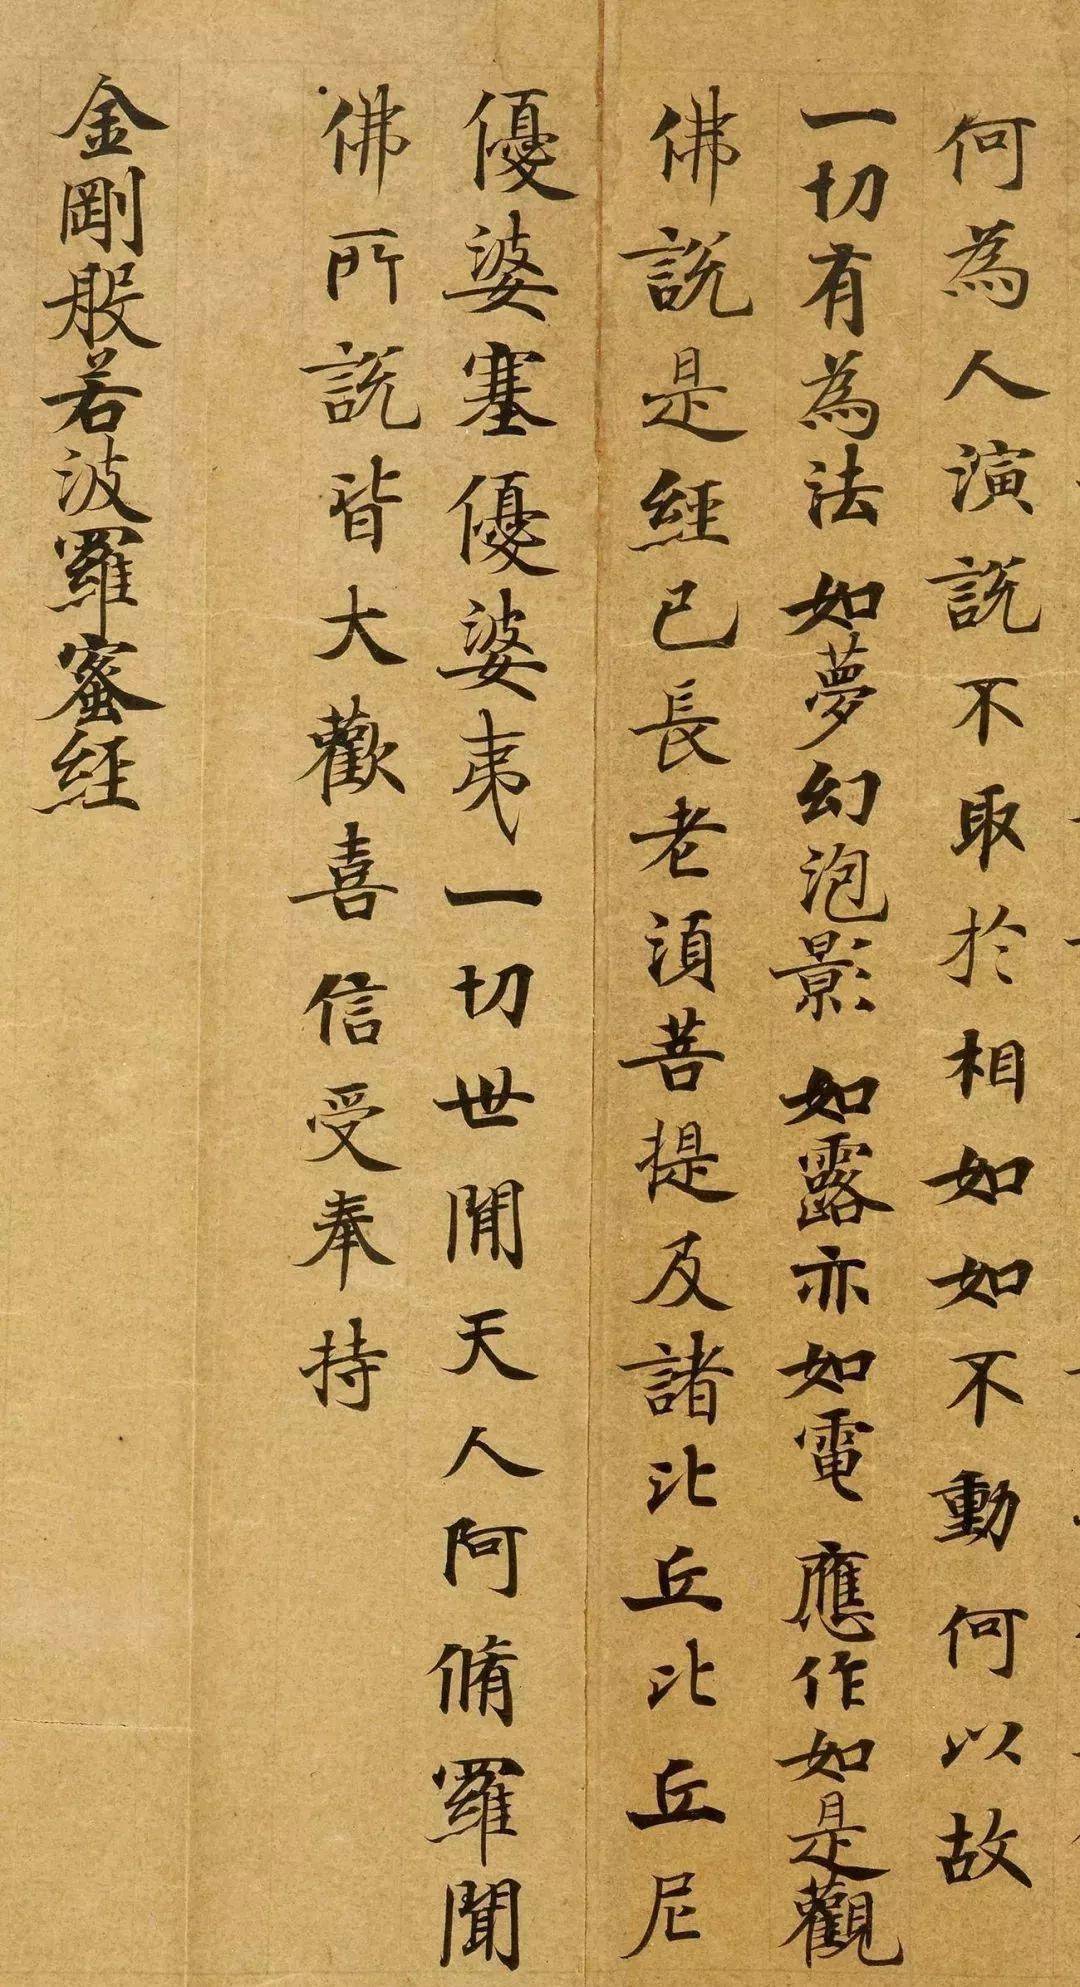 何為人演說不取於相如如不動何以故
一切有為法如夢幻泡影如露亦如電應作如是觀
佛說是經已長老須菩提及諸比丘比丘尼
優婆塞優婆夷一切世間天人阿脩羅聞
佛所說皆大歡喜信受奉持
金剛般若波羅蜜經